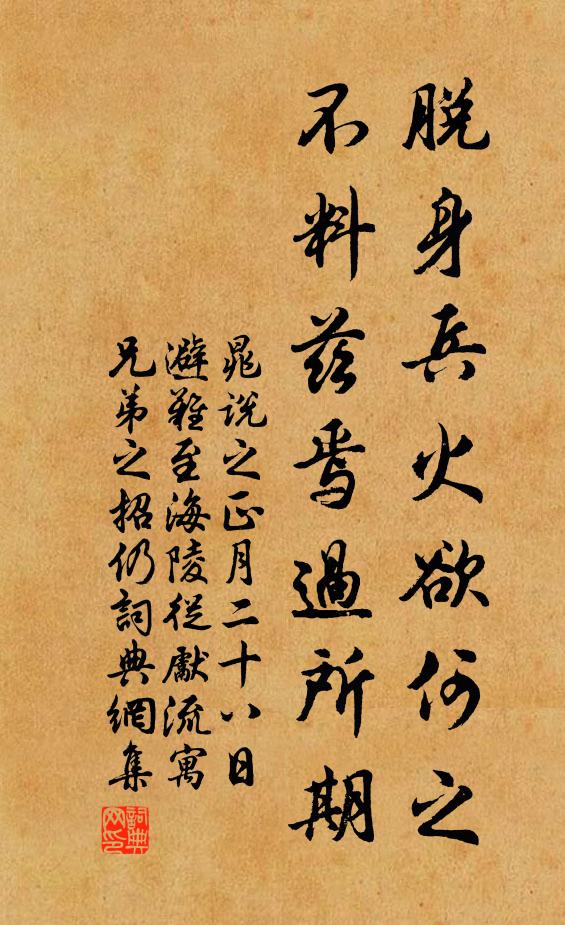 脱身兵火欲何之
不料兹焉過所期
晁说之正月二十八日
避難至海陵從獻流寓
兄弟之招仍詞典網集
詞典网印